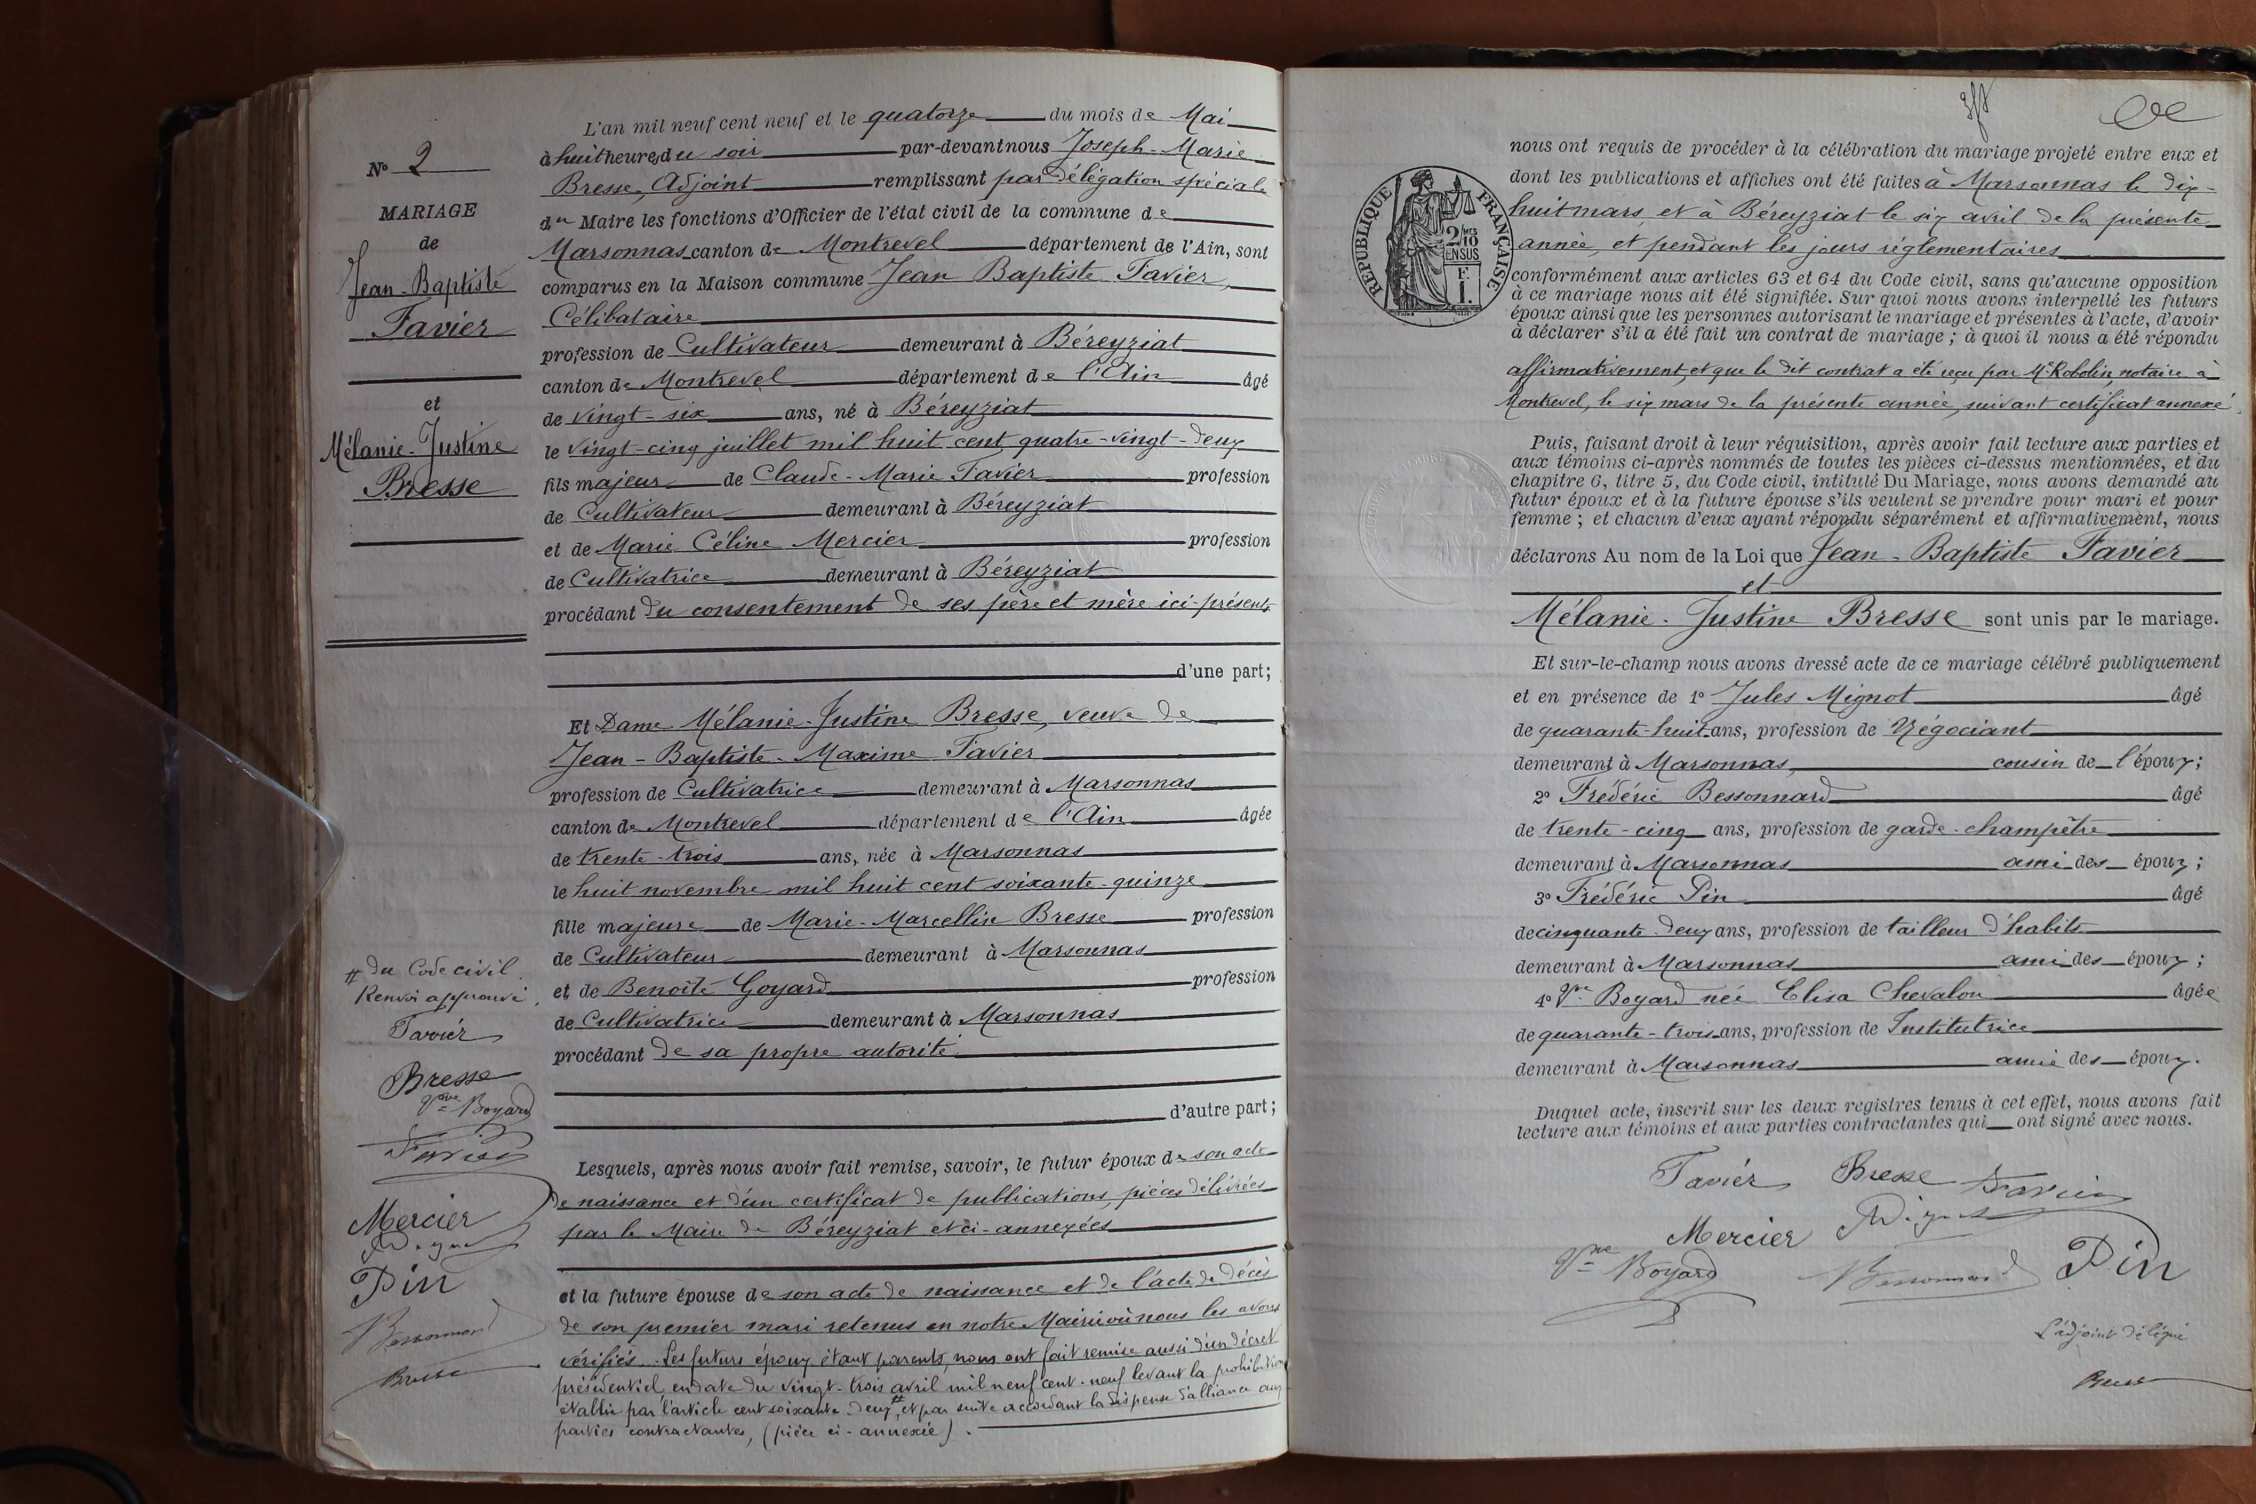 N° 2
MARIAGE
de
Jean-Baptiste
Favier
et
Mélanie-Justine
Bresse
# du Code civil.
Renvoi approuvé.
Favier
Bresse
Vve Boyard
Favier
Mercier
Mignot
Pin
Bessonnard
Bresse
L'an mil neuf cent neuf et le quatorze du mois de Mai
à huit heures du soir par-devant nous Joseph-Marie
Bresse, Adjoint remplissant par délégation spéciale
du Maire les fonctions d'Officier de l'état civil de la commune de
Marsonnas canton de Montrevel département de l'Ain, sont
comparus en la Maison commune Jean Baptiste Favier,
Célibataire
profession de Cultivateur demeurant à Béreyziat
canton de Montrevel département de l'Ain âgé
de vingt-six ans, né à Béreyziat
le vingt-cinq juillet mil huit cent quatre-vingt-deux
fils majeur de Claude-Marie Favier profession
de Cultivateur demeurant à Béreyziat
et de Marie Céline Mercier profession
de Cultivatrice demeurant à Béreyziat
procédant du consentement de ses père et mère ici présents
d'une part;
Et Dame Mélanie-Justine Bresse, veuve de
Jean-Baptiste-Maxime Favier
profession de Cultivatrice demeurant à Marsonnas
canton de Montrevel département de l'Ain âgée
de trente-trois ans, née à Marsonnas
le huit novembre mil huit cent soixante-quinze
fille majeure de Marie-Marcellin Bresse profession
de Cultivateur demeurant à Marsonnas
et de Benoîte Goyard profession
de Cultivatrice demeurant à Marsonnas
procédant de sa propre autorité
d'autre part;
Lesquels, après nous avoir fait remise, savoir, le futur époux de son acte
de naissance et d'un certificat de publications, pièces délivrées
par le Maire de Béreyziat et ci-annexées
et la future épouse de son acte de naissance et de l'acte de décès
de son premier mari retenus en notre Mairie où nous les avons
vérifiés. Les futurs époux étant parents, nous ont fait remise aussi d'un décret
présidentiel en date du vingt-trois avril mil neuf cent-neuf levant la prohibition
établie par l'article cent soixante-deux #, et par suite accordant la dispense d'alliance aux
parties contractantes, (pièce ci-annexée).
REPUBLIQUE FRANÇAISE
2/10 EN SUS
nous ont requis de procéder à la célébration du mariage projeté entre eux et
dont les publications et affiches ont été faites à Marsonnas le dix-
huit mars et à Béreyziat le six avril de la présente
année, et pendant les jours réglementaires
conformément aux articles 63 et 64 du Code civil, sans qu'aucune opposition
à ce mariage nous ait été signifiée. Sur quoi nous avons interpellé les futurs
époux ainsi que les personnes autorisant le mariage et présentes à l'acte, d'avoir
à déclarer s'il a été fait un contrat de mariage; à quoi il nous a été répondu
affirmativement, et que le dit contrat a été reçu par Me Robolin, notaire à
Montrevel, le six mars de la présente année, suivant certificat annexé.
Puis, faisant droit à leur réquisition, après avoir fait lecture aux parties et
aux témoins ci-après nommés de toutes les pièces ci-dessus mentionnées, et du
chapitre 6, titre 5, du Code civil, intitulé Du Mariage, nous avons demandé au
futur époux et à la future épouse s'ils veulent se prendre pour mari et pour
femme; et chacun d'eux ayant répondu séparément et affirmativement, nous
déclarons Au nom de la Loi que Jean-Baptiste Favier
et
Mélanie-Justine Bresse sont unis par le mariage.
Et sur-le-champ nous avons dressé acte de ce mariage célébré publiquement
et en présence de 1° Jules Mignot âgé
de quarante-huit ans, profession de Négociant
demeurant à Marsonnas, cousin de l'époux;
2° Frédéric Bessonnard âgé
de trente-cinq ans, profession de garde-champêtre
demeurant à Marsonnas ami des époux;
3° Frédéric Pin âgé
de cinquante-deux ans, profession de tailleur d'habits
demeurant à Marsonnas ami des époux;
4° Vve Boyard née Elisa Chevalon âgée
de quarante-trois ans, profession de Institutrice
demeurant à Marsonnas amie des époux.
Duquel acte, inscrit sur les deux registres tenus à cet effet, nous avons fait
lecture aux témoins et aux parties contractantes qui ont signé avec nous.
Favier Bresse Favier
Mercier Mignot
Vve Boyard Bessonnard Pin
L'adjoint délégué
Bresse